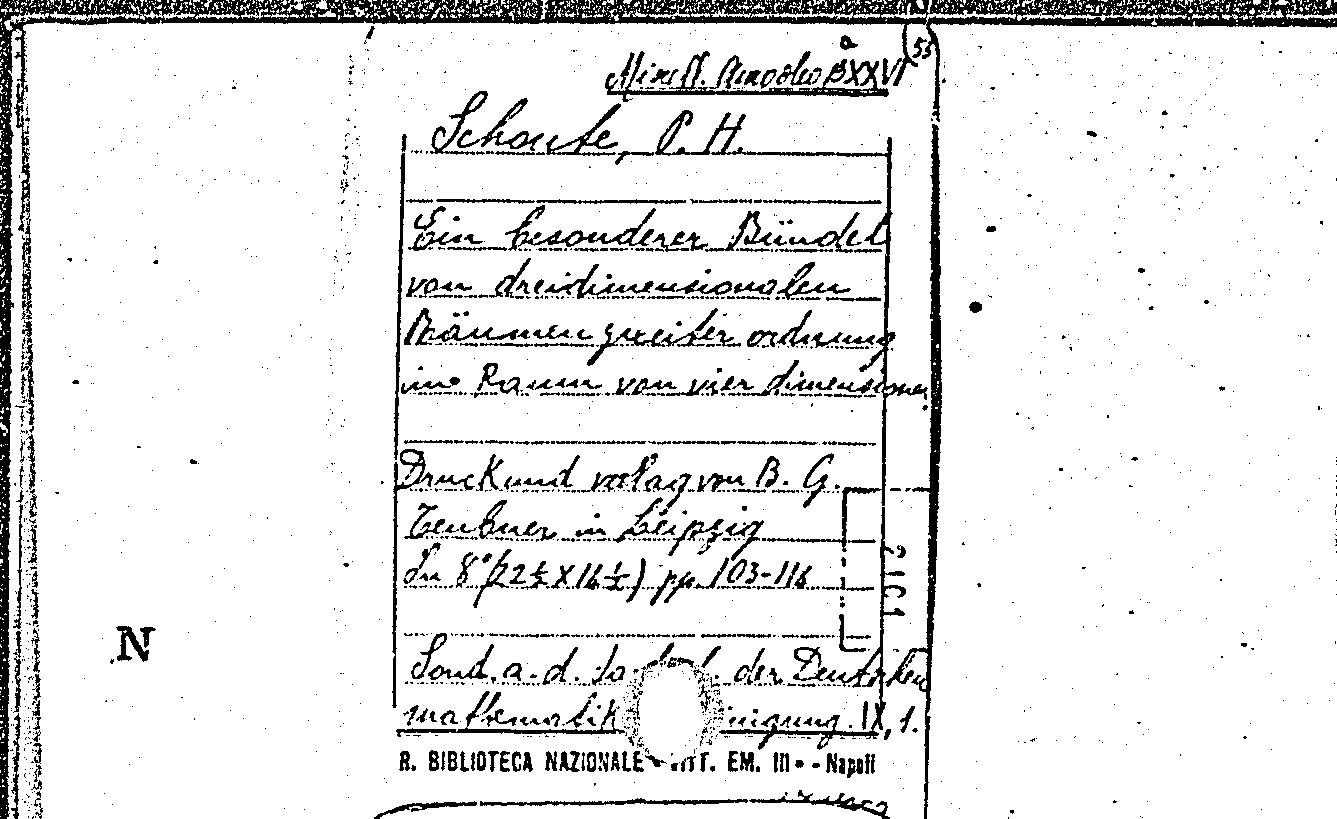 a
55
Miscell. Amodeo B XXVI
Schoute, P. H.
Ein besonderer Bündel
von dreidimensionalen
Räumen zweiter ordnung
im Raum von vier dimensionen
Druck und verlag von B. G.
Teubner in Leipzig
In 8° (22 ½ X 16 ½) pp. 103-116
2101
Sond. a. d. der Deutschen
mathematik inigung. IX, 1.
R. BIBLIOTECA NAZIONALE ITT. EM. III - Napoli
N